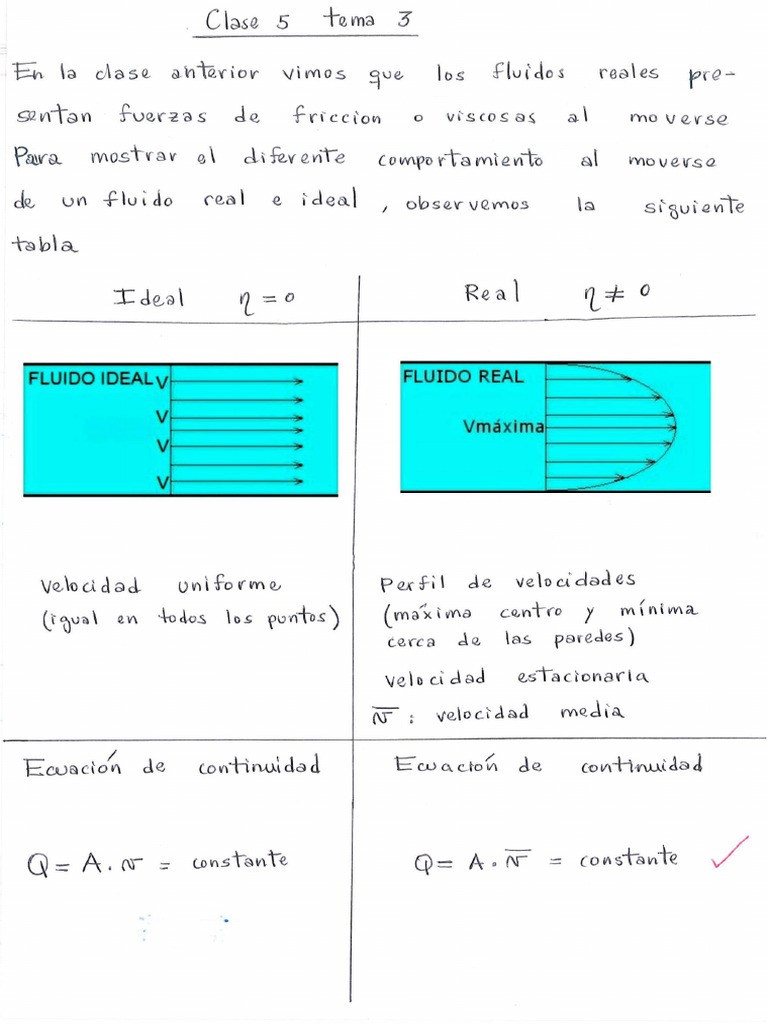 Clase 5 tema 3
En la clase anterior vimos que los fluidos reales pre-
sentan fuerzas de friccion o viscosas al moverse
Para mostrar el diferente comportamiento al moverse
de un fluido real e ideal, observemos la siguiente
tabla
Ideal η = 0
Real η ≠ 0
FLUIDO IDEAL V
V
V
V
FLUIDO REAL
Vmáxima
Velocidad uniforme
(igual en todos los puntos)
Perfil de velocidades
(máxima centro y mínima
cerca de las paredes)
velocidad estacionaria
v̅ : velocidad media
Ecuación de continuidad
Ecuación de continuidad
Q = A . v = constante
Q = A . v̅ = constante